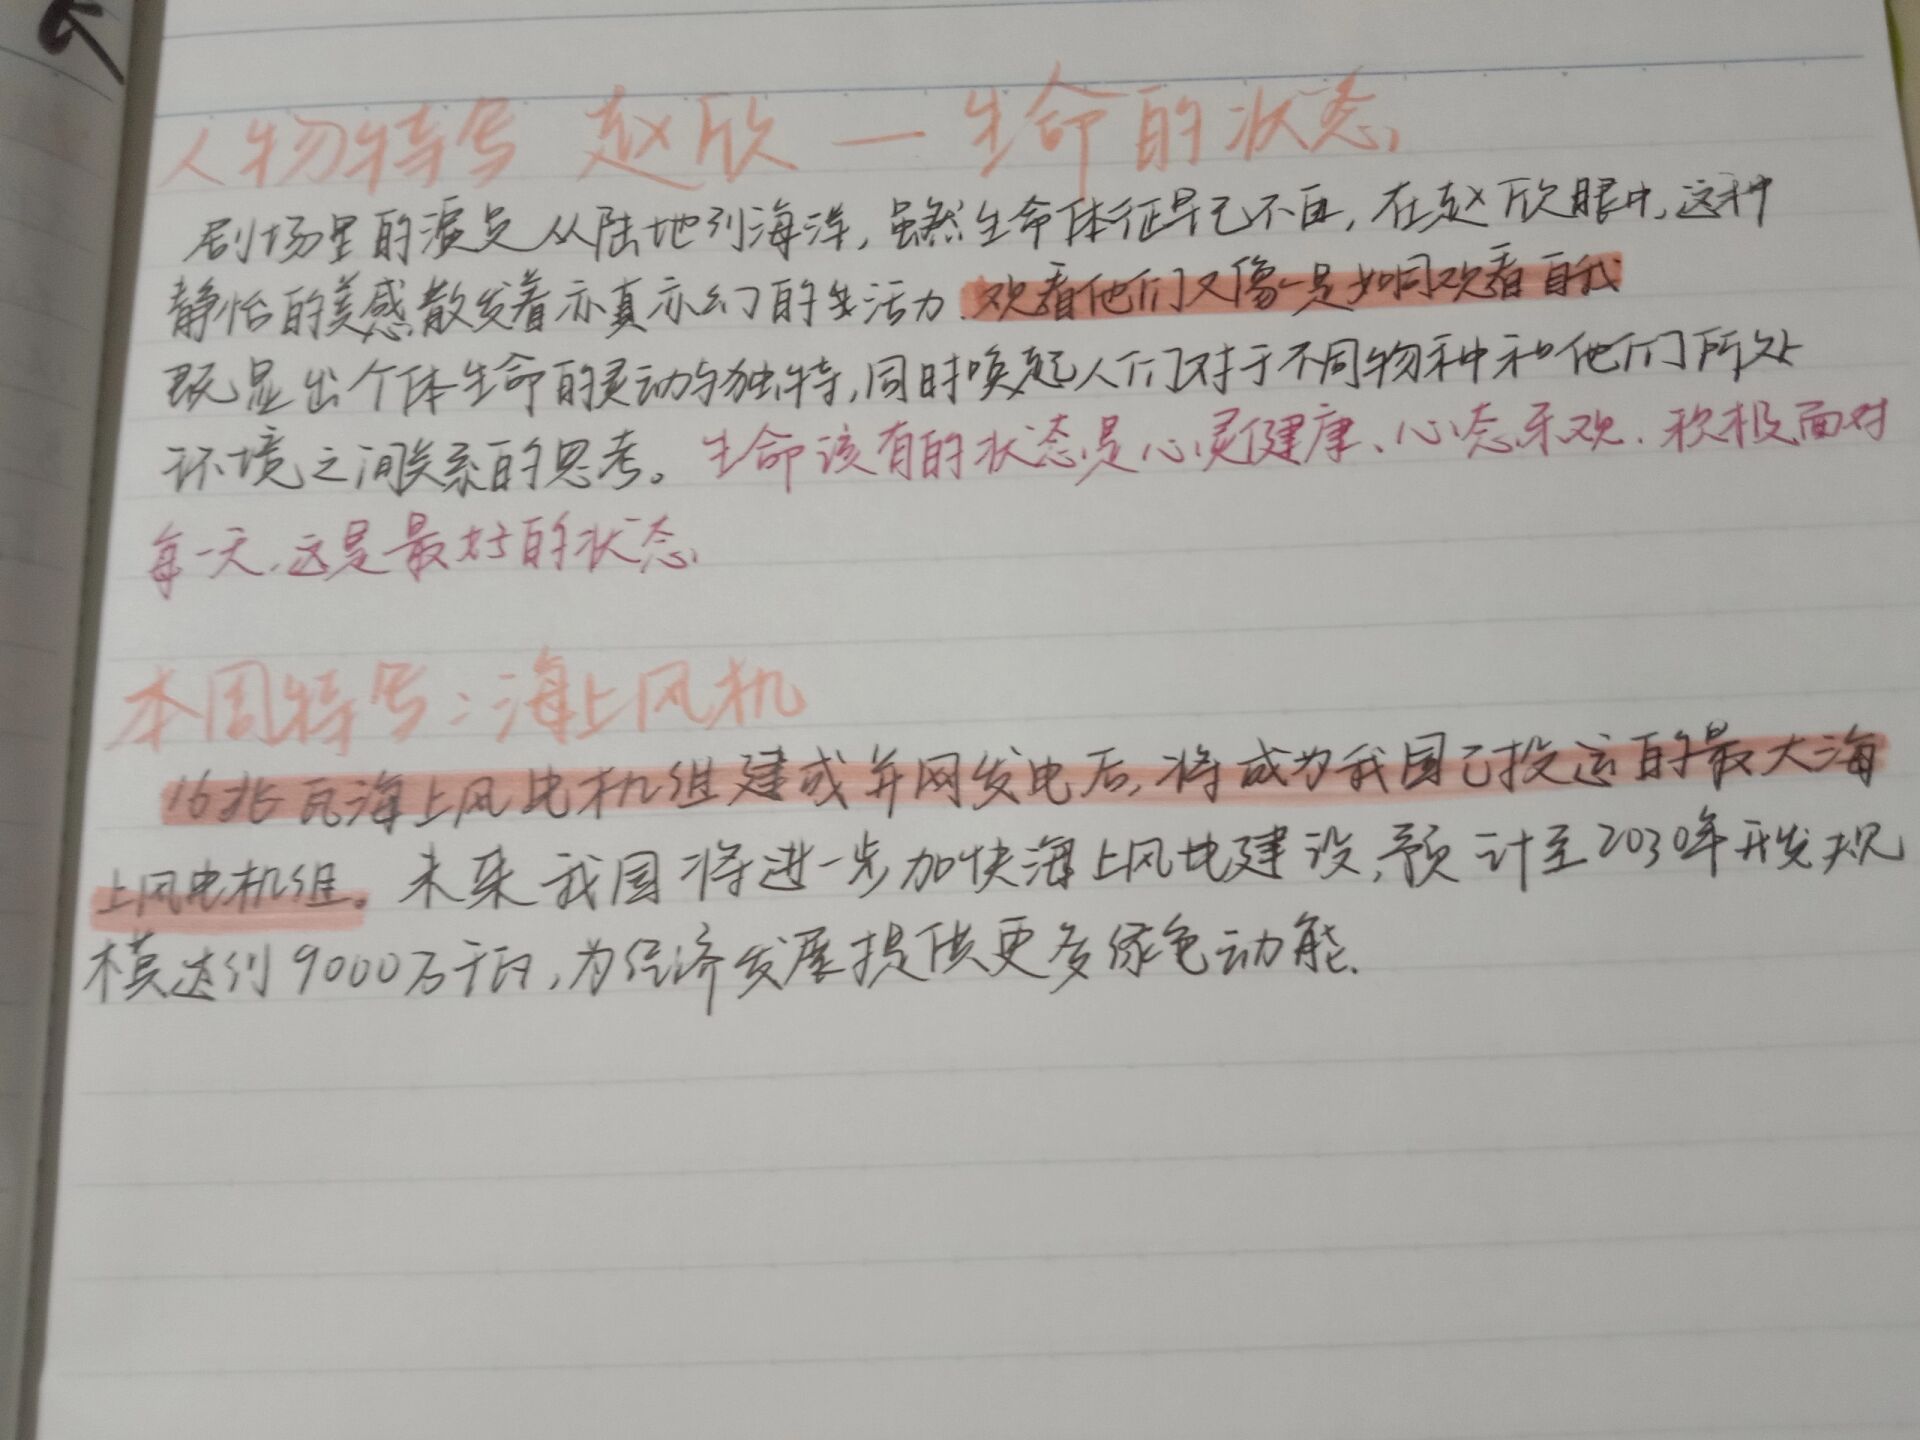 人物特写 赵欣一生命的状态
剧场里的演员从陆地到海洋,虽然生命体征早已不再,在赵欣眼中,这种
静怡的美感散发着亦真亦幻的生活力.观看他们又像是如同观看自我
既显出个体生命的灵动与独特,同时唤起人们对于不同物种和他们所处
环境之间关系的思考。生命该有的状态是心灵健康、心态乐观.积极面对
每一天.这是最好的状态.
本周特写:海上风机
16兆瓦海上风电机组建成并网发电后,将成为我国已投运的最大海
上风电机组。未来我国将进一步加快海上风电建设,预计至2030年开发规
模达到9000万千瓦,为经济发展提供更多绿色动能.